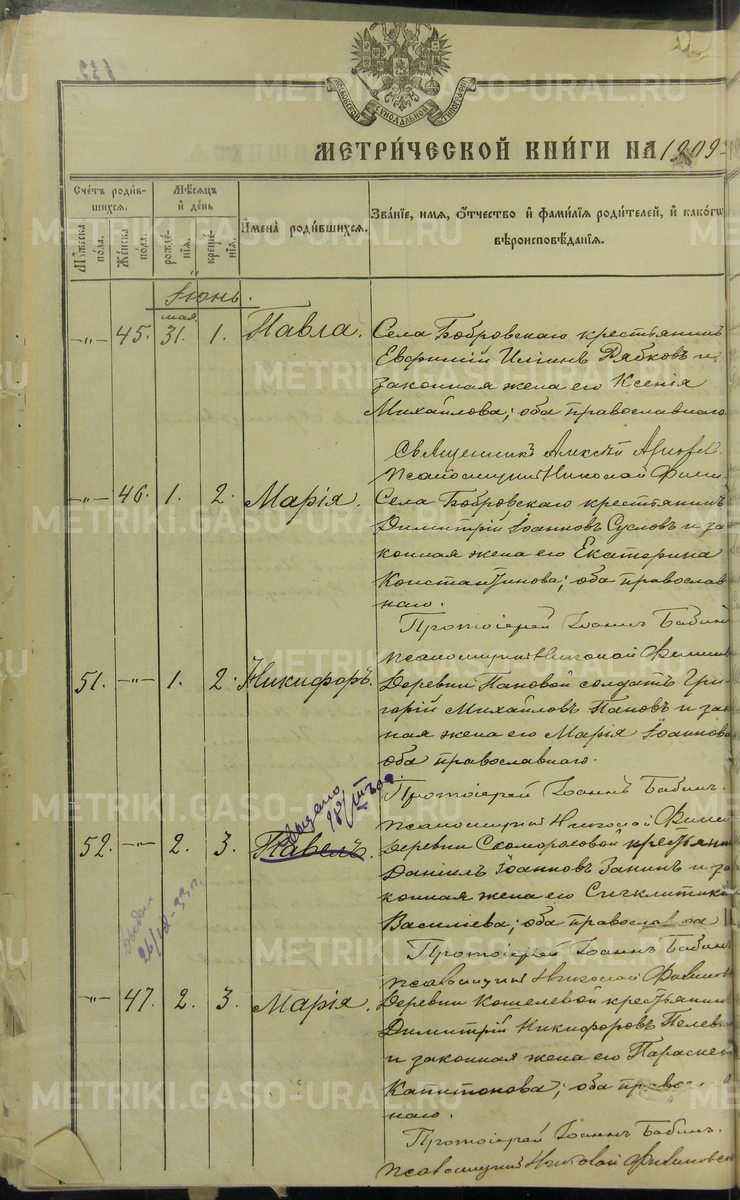 132.
МОСКОВСКОЙ СѴНОДАЛЬНОЙ ТИПОГРАФІИ
МЕТРИ́ЧЕСКОЙ КНИ́ГИ НА 1909
Счéтъ роди́в-
шихся.
Мꙋ́жеска пóла.
Же́нска пóла.
Мѣ́сяцъ
и҆ де́нь
рожде́-
нїя.
креще́-
нїя.
И҆мена̀ роди́вшихся.
Зва́нїе, и҆мя, ѻ҆́тчество и҆ фами́лїя роди́телей, и҆ како́гѡ
вѣроисповѣ́данїя.
Іюнь.
мая
-"- 45. 31. 1. Павла. Села Бобровскаго крестьянинъ
Евфимій Иліинъ Рябковъ и
законная жена его Ксенія
Михайлова; оба православнаго
Священникъ Алексѣй
Псаломщикъ Николай
-"- 46. 1. 2. Марія. Села Бобровскаго крестьянинъ
Димитрій Іоанновъ Сусловъ и за
конная жена его Екатерина
Константинова; оба православ
наго.
Протоіерей Іоаннъ Бабинъ
Псаломщикъ Николай
51. -"- 1. 2. Никифоръ. Деревни Пановой солдатъ Гри
горій Михайловъ Пановъ и зак
ная жена его Марія Іоаннова
оба православнаго.
Протоіерей Іоаннъ Бабинъ.
Псаломщикъ Николай
Выдано
52. -"- 2. 3. Павелъ. Деревни Скомороховой крестьян
Даніилъ Іоанновъ Занинъ и за
конная жена его Сигклитика
Василіева; оба правосла
Протоіерей Іоаннъ Бабинъ
Псаломщикъ Николай
-"- 47. 2. 3. Марія. Деревни Кошелевой крестьянинъ
Димитрій Никифоровъ Пелев
и законная жена его Параске
Капитонова; оба правос
наго.
Протоіерей Іоаннъ Бабинъ.
Псаломщикъ Николай
METRIKI.GASO-URAL.RU